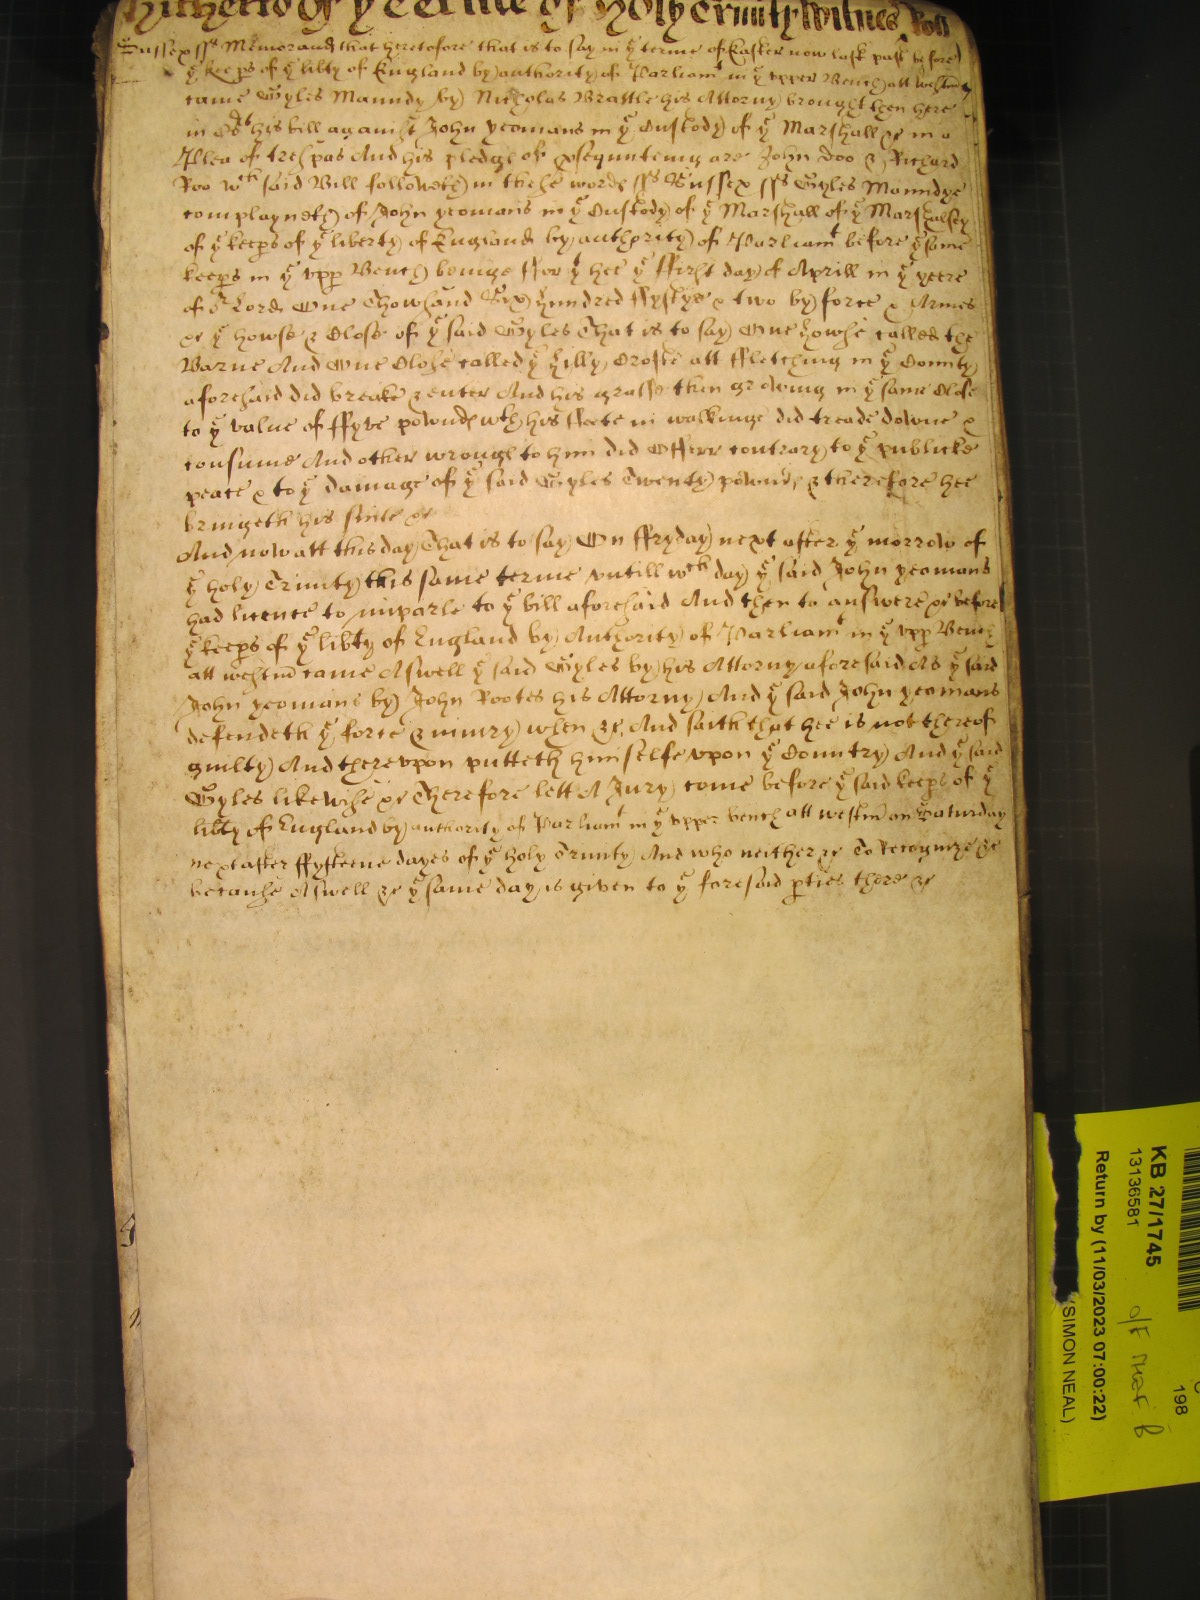 hitherto of ye terme of Holy Trinity Witnes Roll
Sussex ss Memorand that heretofore that is to say in ye terme of Easter now last past before
ye keeps of ye libty of England by authority of Parliamt in ye upper Bench att Westm
came Gyles Maundy by Nicholas Brattle his Attorny brought then here
in Cort his bill against John yeomans in ye Custody of ye Marshall &c in a
Plea of trespas And his pledge of psequuteing are John Doo & Richard
Roo wch said Bill followeth in these words ss Sussex ss Gyles Maundye
complayneth of John yeomans in ye Custody of ye Marshall of ye Marshalsey
of ye keeps of ye liberty of England by authority of Parliamt before ye same
keeps in ye upp Bench beinge ffor yt hee ye ffirst day of Aprill in ye yeere
of or Lord One Thowsand Six Hundred ffyftye & two by force & Armes
&c ye howse & Close of ye said Gyles That is to say One howse called the
Barne And One Close called ye Hilly Crofte att ffletching in ye County
aforesaid did breake & enter And his grasse then growing in ye same Close
to ye value of ffyve pownds wth his ffeete in walkinge did treade downe &
consume And other wrongs to him did Offerr contrary to ye publicke
peace & to ye damage of ye said Gyles Twenty pownds & therefore hee
bringeth his suite &c
And now att this day That is to say On ffryday next after ye morrow of
ye holy Trinity this same terme untill wch day ye said John yeomans
had licence to imparle to ye bill aforesaid And then to answere &c before
ye keeps of ye libty of England by Authority of Parliamt in ye upp Bench
att Westm came Aswell ye said Gyles by his Attorny aforesaid As ye said
John yeomans by John Rootes his Attorny And ye said John yeomans
defendeth ye force & iniury when &c And saith that hee is not thereof
guilty And thereupon putteth himselfe upon ye Country And ye said
Gyles likewise &c Therefore lett A Jury come before ye said keeps of ye
libty of England by authority of Parliamt in ye upper bench att westm on Saturday
next after ffyfteene dayes of ye holy Trinity And who neither &c To Recognize &c
because Aswell &c ye same day is given to ye foresaid pties there &c
KB 27/1745
13136581
Return by (11/03/2023 07:00:22)
(SIMON NEAL)
198